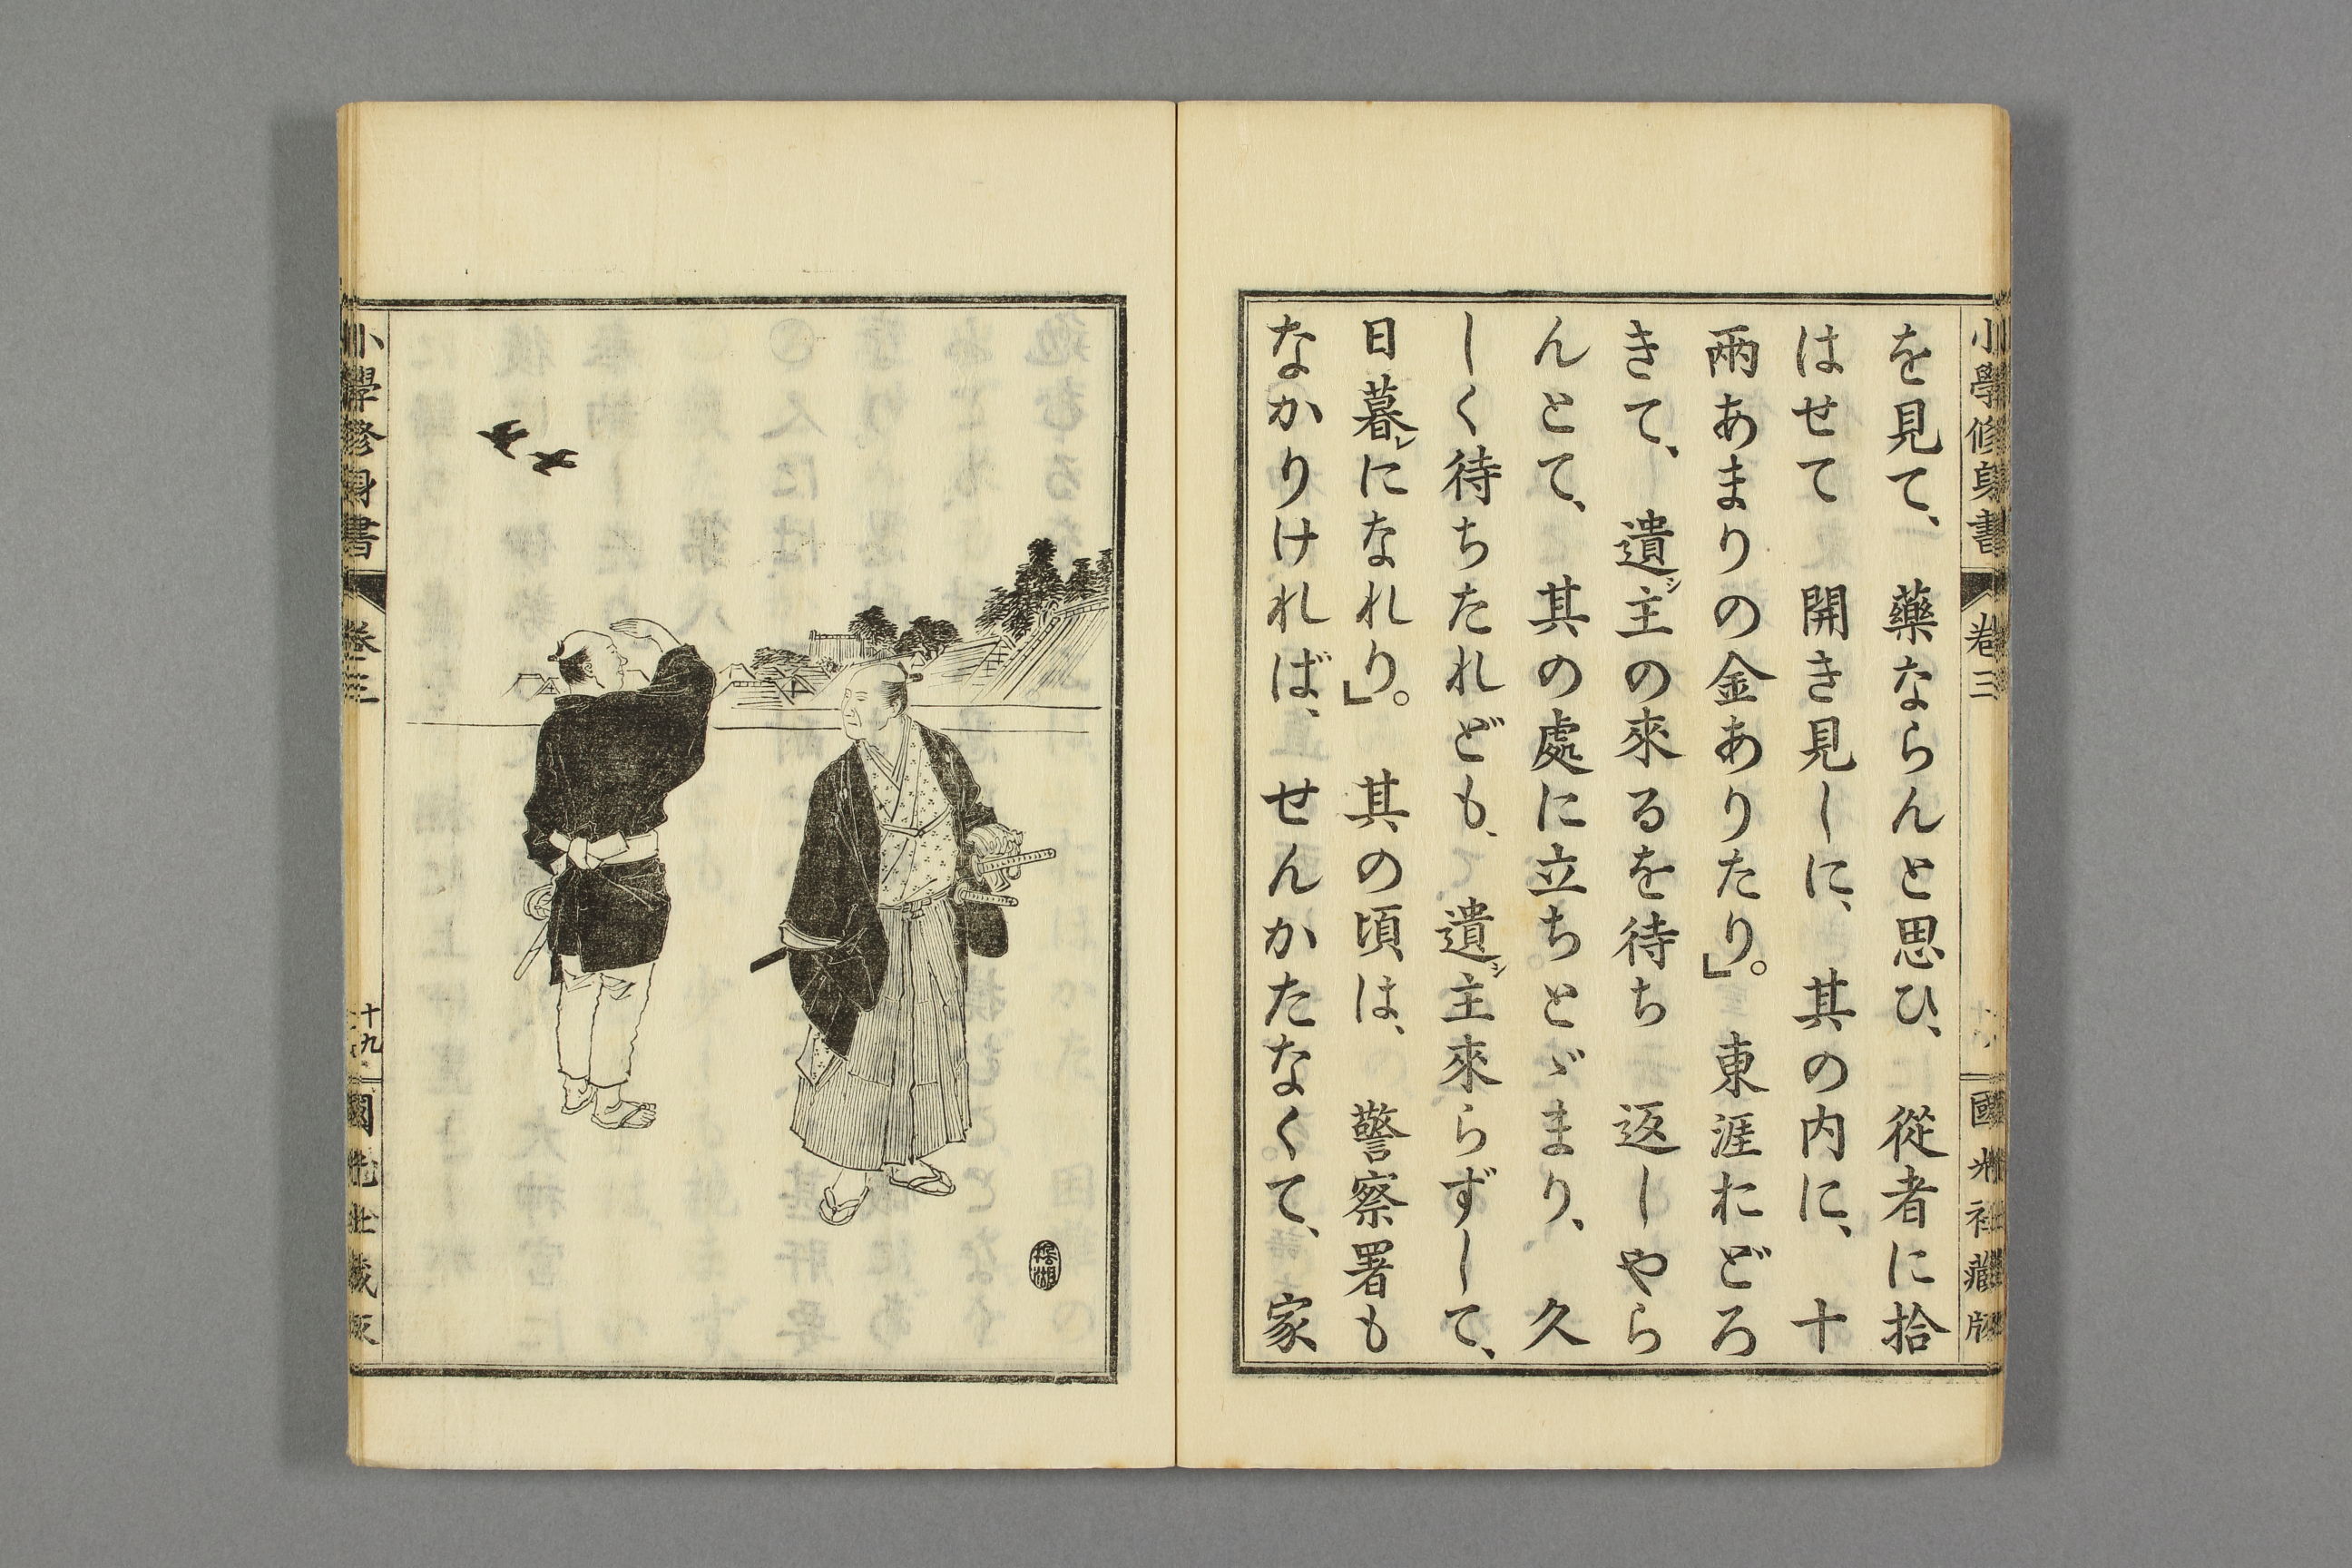 小學修身書 卷三 國光社藏版
を見て、藥ならんと思ひ、從者に拾
はせて開き見しに、其の内に、十
兩あまりの金ありたり」。東涯おどろ
きて、遺シ主の來るを待ち返しやら
んとて、其の處に立ちとゞまり、久
しく待ちたれども、遺シ主來らずして、
日暮レになれり」。其の頃は、警察署も
なかりければ、せんかたなくて、家
小學修身書 卷三 十九 國光社藏版